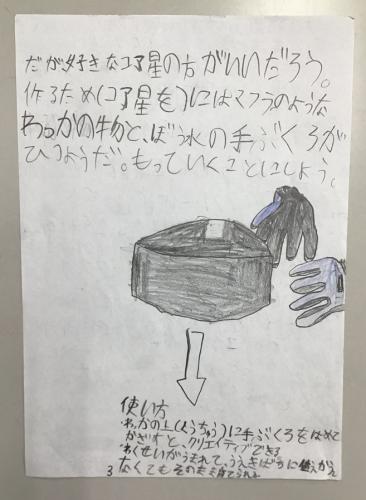 だが好きなコア星の方がいいだろう。
作るため(コア星を)にはマフラのような
わっかの物と、ぼう水の手ぶくろが
ひつようだ。もっていくことにしよう。
使い方
わっかの上(くうちゅう)に手ぶくろをはめて
かざすと、クリエイティブできる
わくせいがうまれて、うえきばちに
なくてもそのまま
3